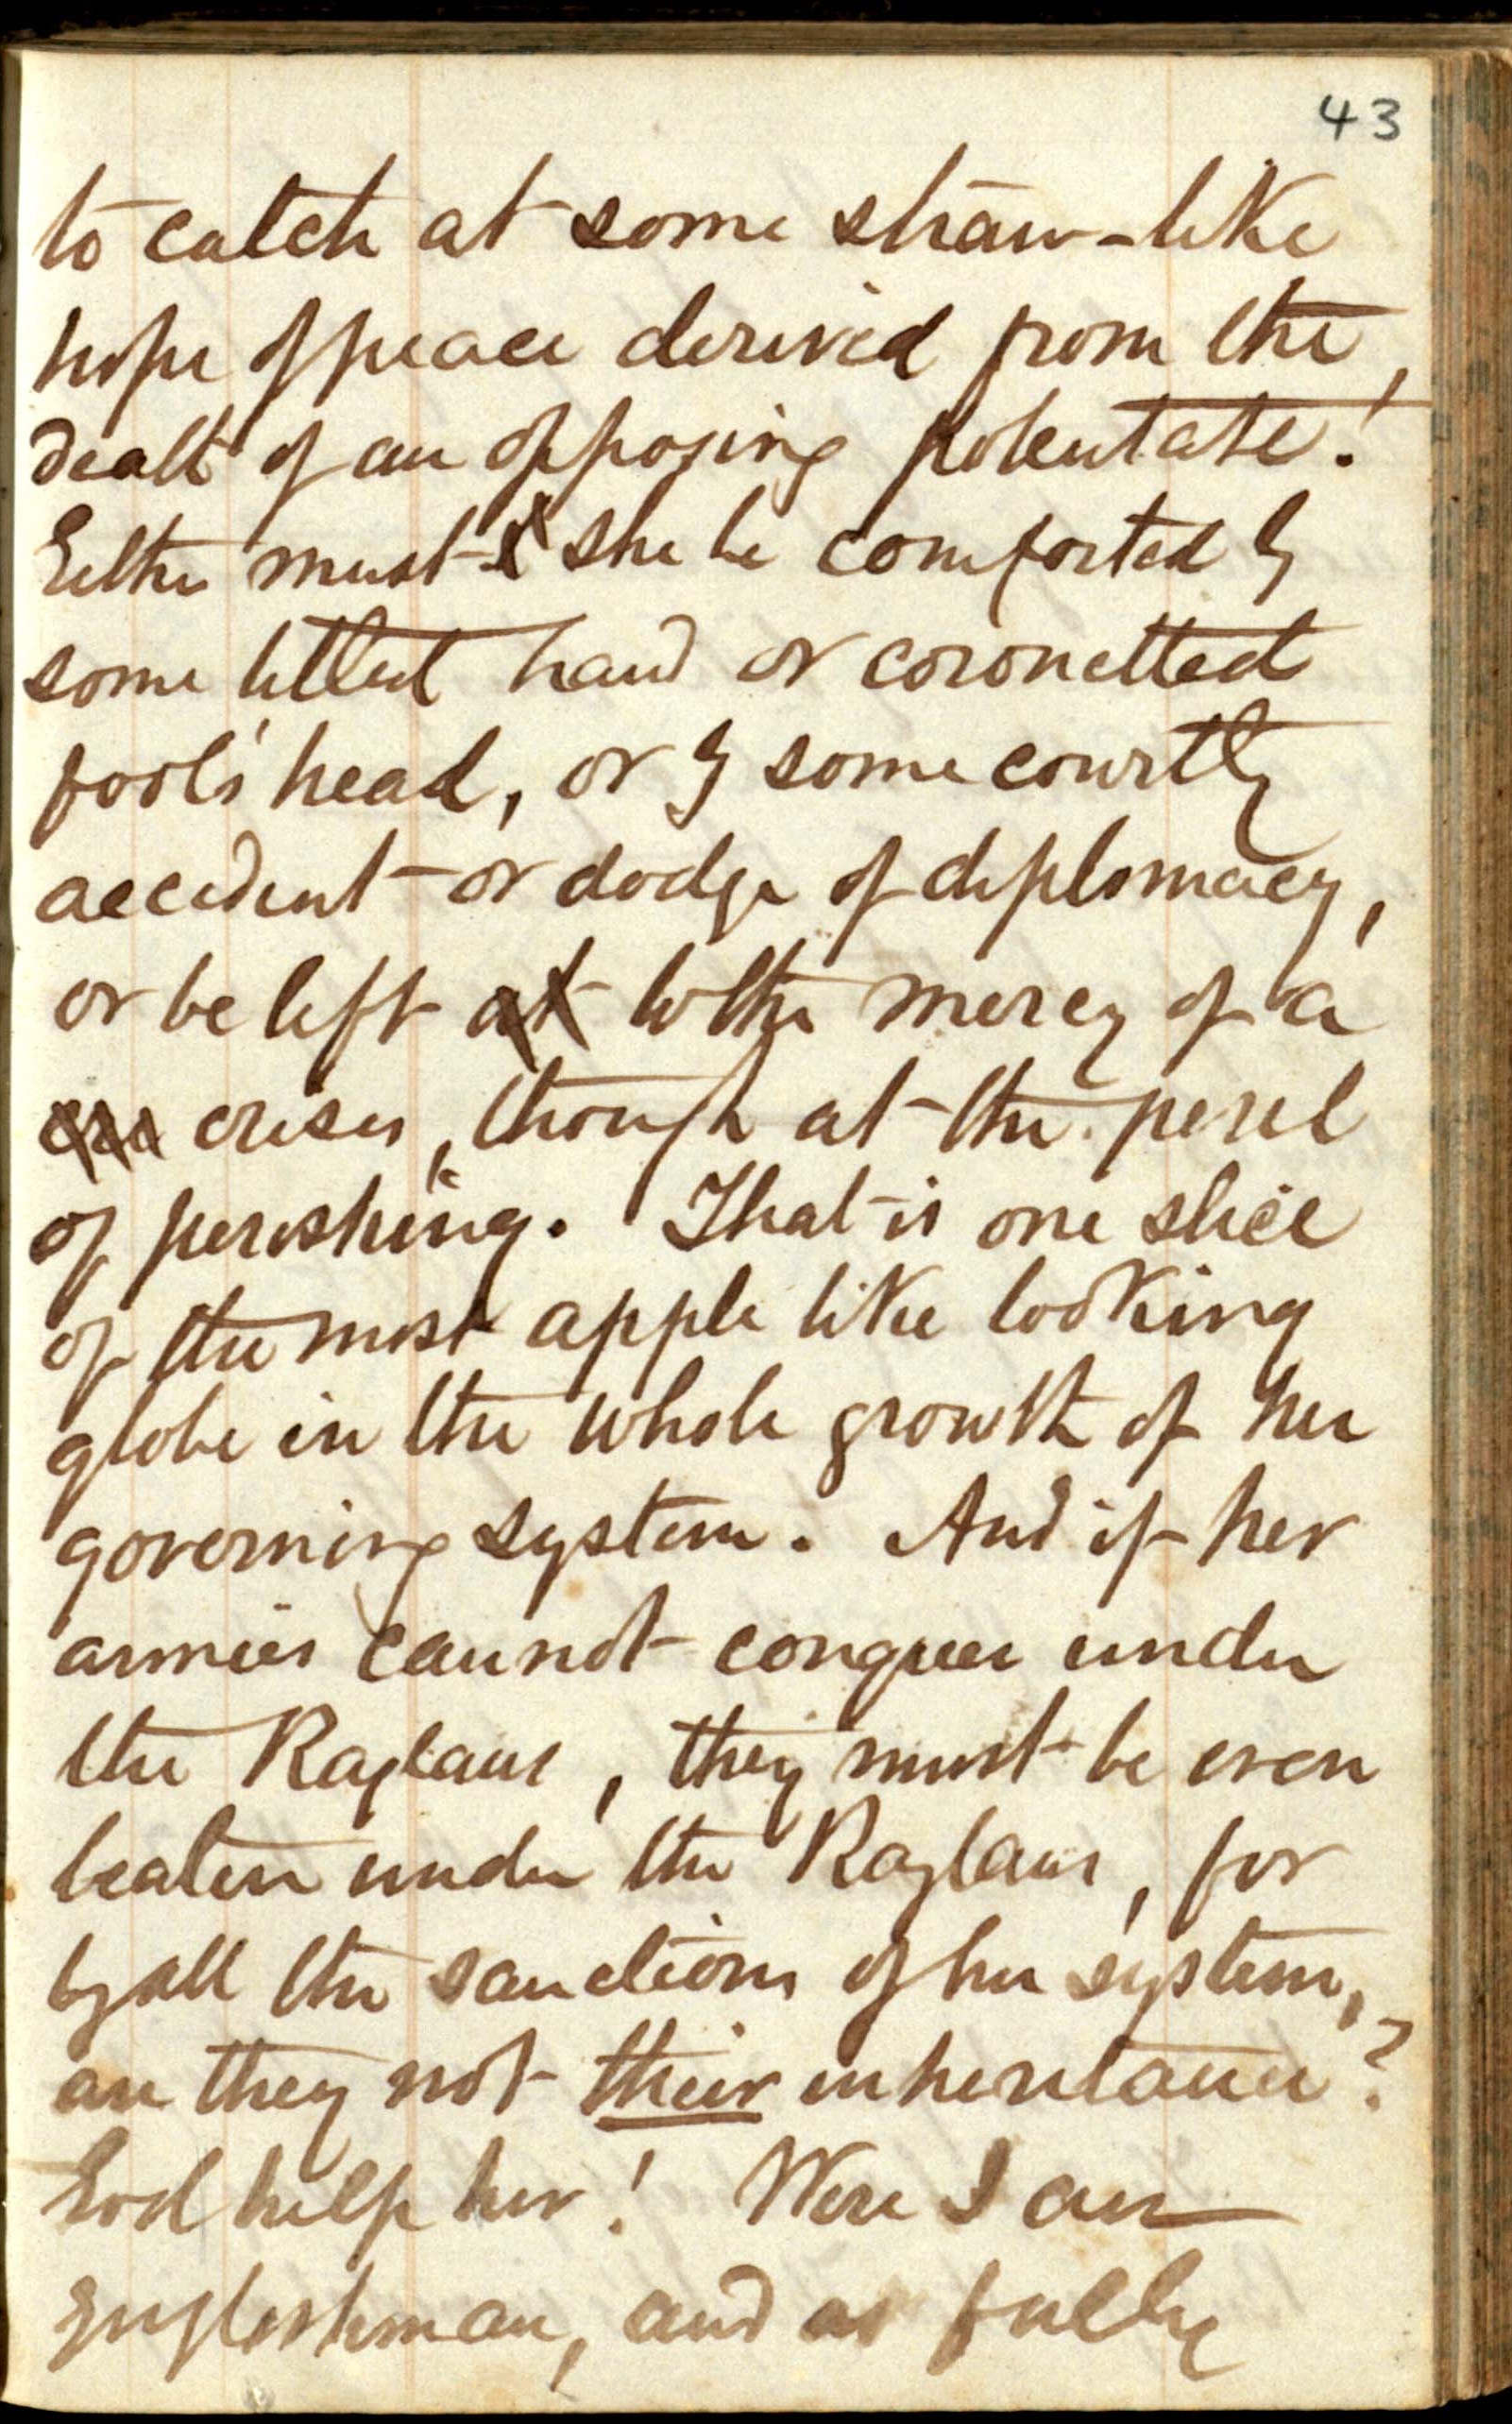 43
to catch at some straw-like
hope of peace derived from the
death of an opposing potentate!
Either must she be comforted by
some titled hand or coronetted
fool's head, or by some courtly
accident or dodge of diplomacy,
or be left at to the mercy of a
crisis, though at the peril
of perishing. That is one slice
of the most apple like looking
globe in the whole growth of her
governing system. And if her
armies cannot conquer under
the Raglans, they must be even
beaten under the Raglans, for
by all the sanctions of her system,
are they not their inheritance?
God help her! Were I an
Englishman, and as fully